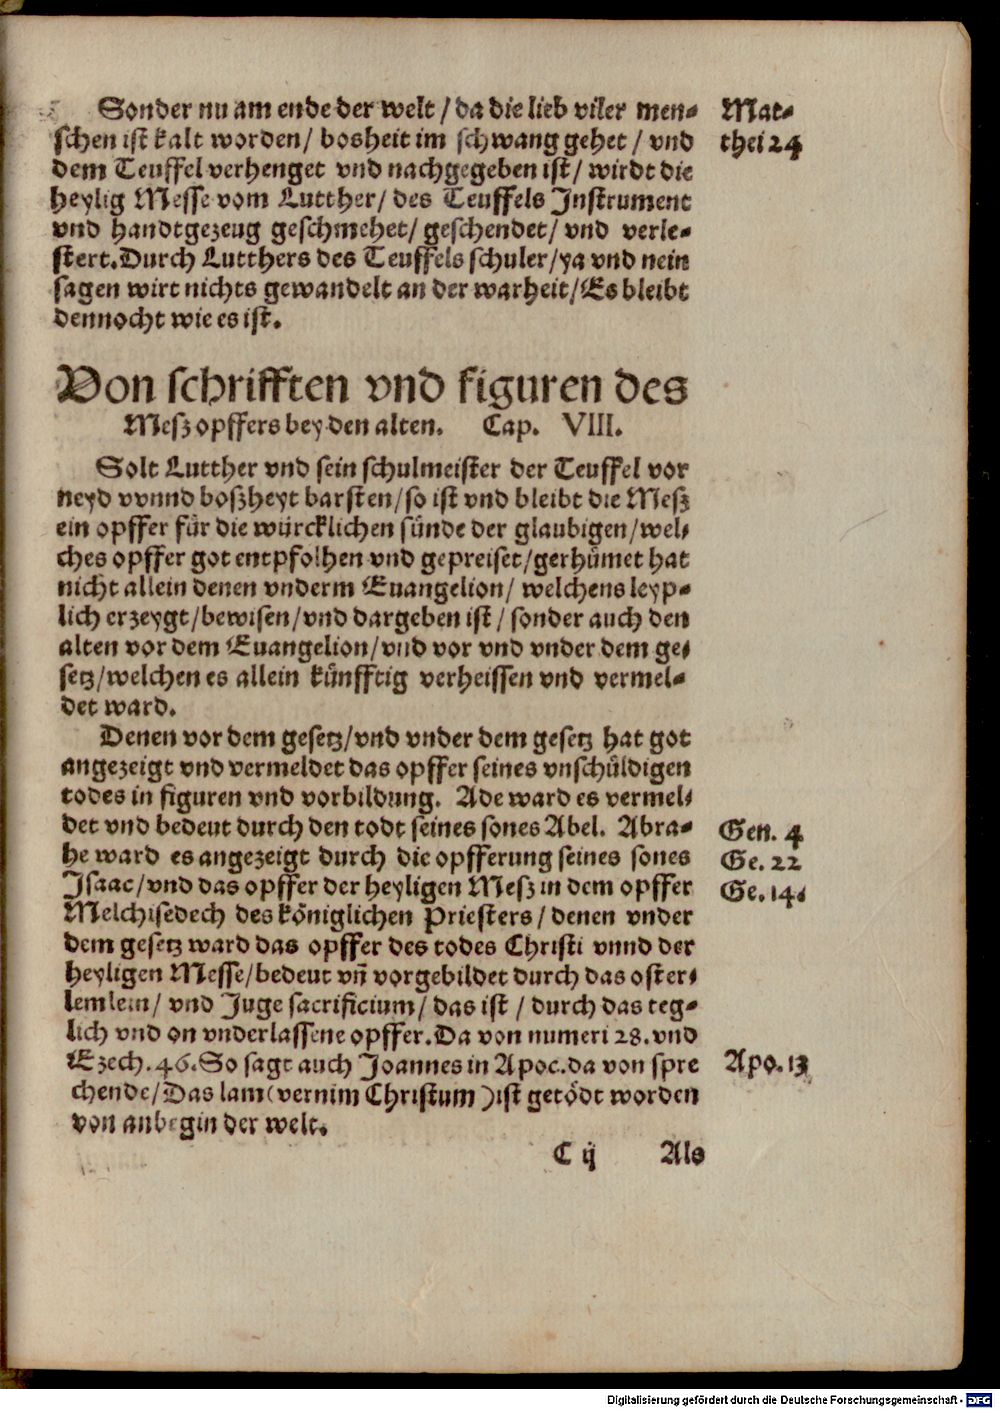 Sonder nu am ende der welt / da die lieb viler men-
schen ist kalt worden / bosheit im schwang gehet / vnd
dem Teuffel verhenget vnd nachgegeben ist / wirdt die
heylig Messe vom Lutther / des Teuffels Instrument
vnd handtgezeug geschmehet / geschendet / vnd verle-
stert. Durch Lutthers des Teuffels schuler / ya vnd nein
sagen wirt nichts gewandelt an der warheit / Es bleibt
dennocht wie es ist.
Mat-
thei 24
Von schrifften vnd figuren des
Mesz opffers bey den alten. Cap. VIII.
Solt Lutther vnd sein schulmeister der Teuffel vor
neyd vvnnd boßheyt barsten / so ist vnd bleibt die Mesz
ein opffer für die würcklichen sünde der glaubigen / wel-
ches opffer got entpfolhen vnd gepreiset / gerhümet hat
nicht allein denen vnderm Euangelion / welchens leyp-
lich erzeygt / bewisen / vnd dargeben ist / sonder auch den
alten vor dem Euangelion / vnd vor vnd vnder dem ge-
setz / welchen es allein künfftig verheissen vnd vermel-
det ward.
Denen vor dem gesetz / vnd vnder dem gesetz hat got
angezeigt vnd vermeldet das opffer seines vnschüldigen
todes in figuren vnd vorbildung. Ade ward es vermel-
det vnd bedeut durch den todt seines sones Abel. Abra-
he ward es angezeigt durch die opfferung seines sones
Isaac / vnd das opffer der heyligen Mesz in dem opffer
Melchisedech des königlichen Priesters / denen vnder
dem gesetz ward das opffer des todes Christi vnnd der
heyligen Messe / bedeut vn̄ vorgebildet durch das oster-
lemlein / vnd Juge sacrificium / das ist / durch das teg-
lich vnd on vnderlassene opffer. Da von numeri 28. vnd
Ezech. 46. So sagt auch Joannes in Apoc. da von spre
chende / Das lam (vernim Christum) ist getödt worden
von anbegin der welt.
Gen. 4
Ge. 22
Ge. 14.
Apo. 13
C ij Als
Digitalisierung gefördert durch die Deutsche Forschungsgemeinschaft - DFG